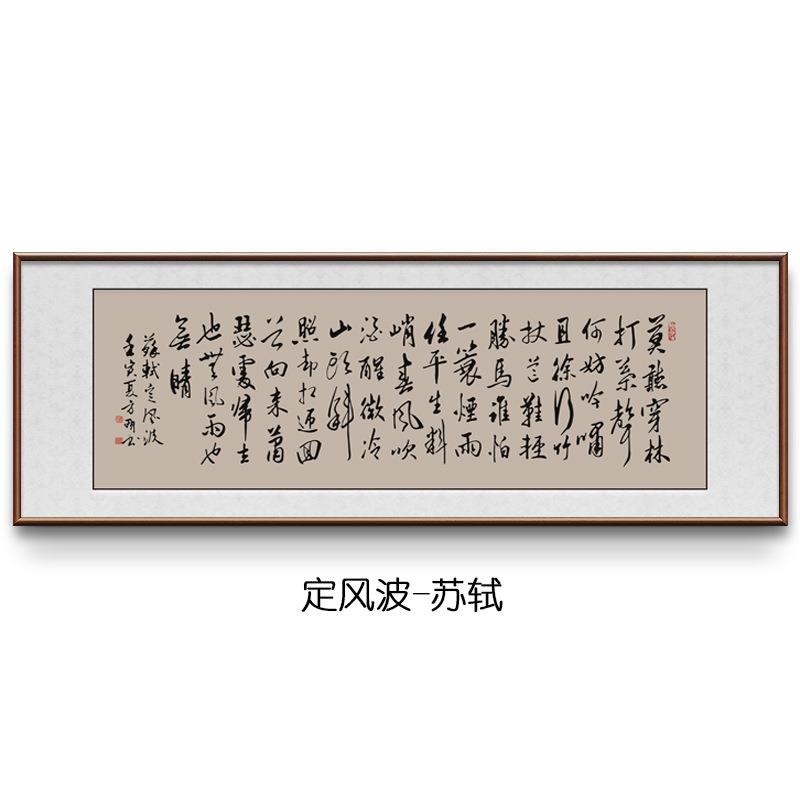 莫聽穿林
打葉聲
何妨吟嘯
且徐行竹
杖芒鞋輕
勝馬誰怕
一蓑煙雨
任平生料
峭春風吹
酒醒微冷
山頭斜
照却相迎回
首向来蕭
瑟處歸去
也無風雨也
無晴
蘇軾定風波
壬寅夏方书
定风波-苏轼